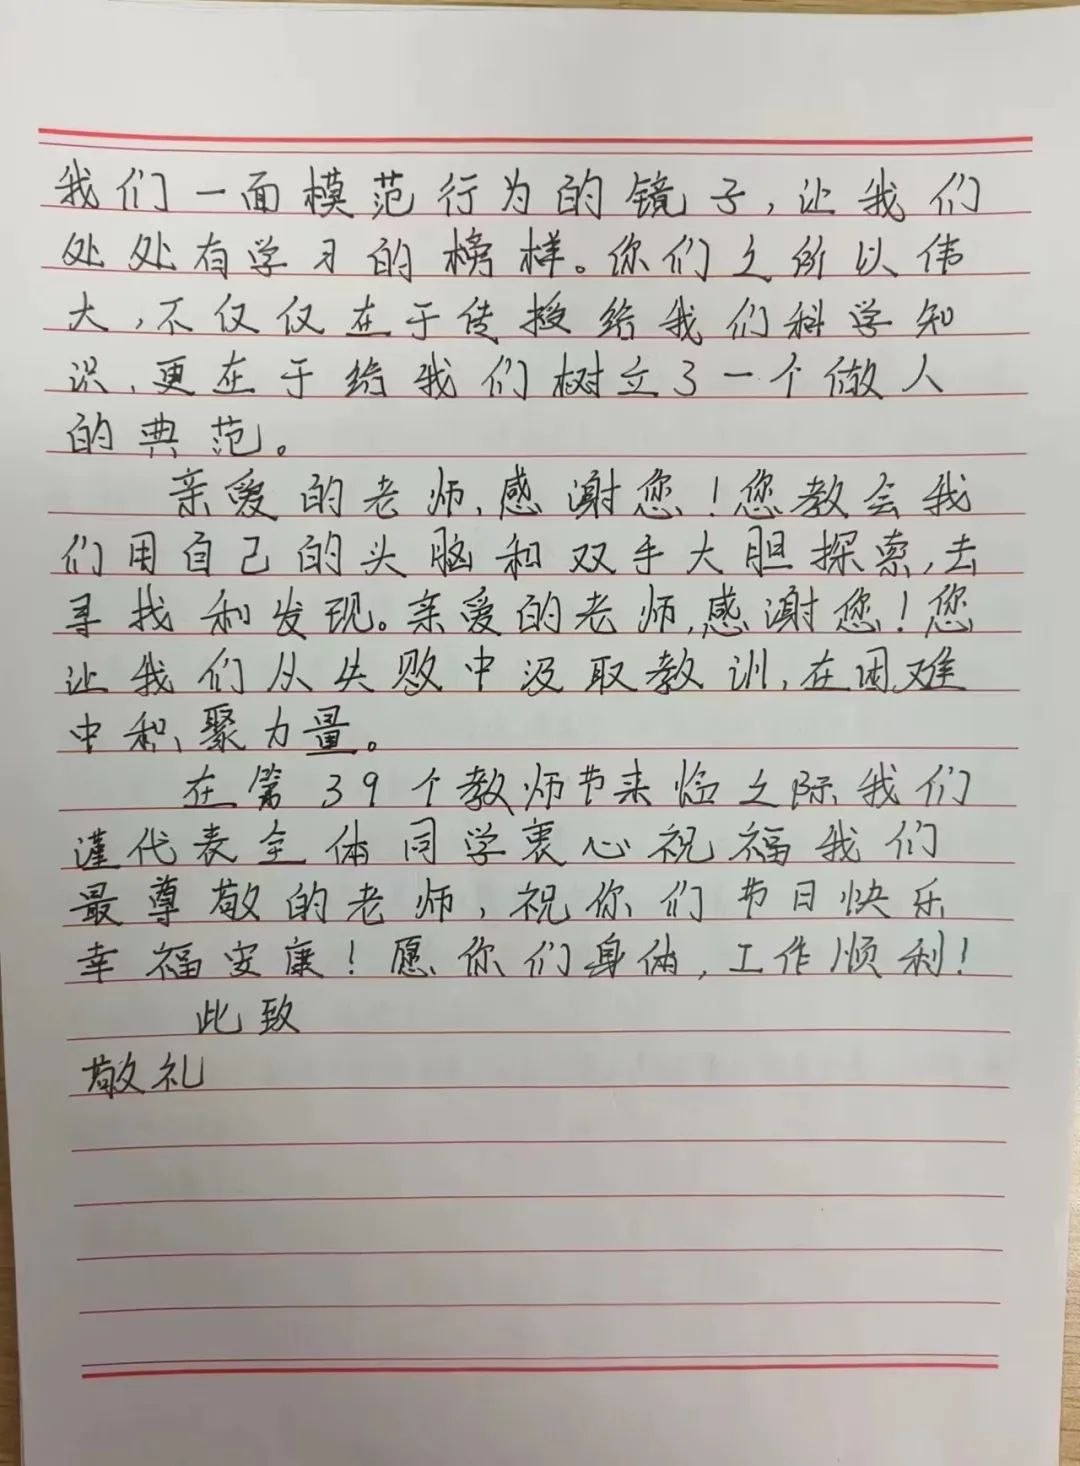 我们一面模范行为的镜子,让我们
处处有学习的榜样。你们之所以伟
大,不仅仅在于传授给我们科学知
识,更在于给我们树立了一个做人
的典范。
亲爱的老师,感谢您!您教会我
们用自己的头脑和双手大胆探索,去
寻找和发现。亲爱的老师,感谢您!您
让我们从失败中汲取教训,在困难
中积聚力量。
在第39个教师节来临之际,我们
谨代表全体同学衷心祝福我们
最尊敬的老师,祝你们节日快乐
幸福安康!愿你们身体,工作顺利!
此致
敬礼